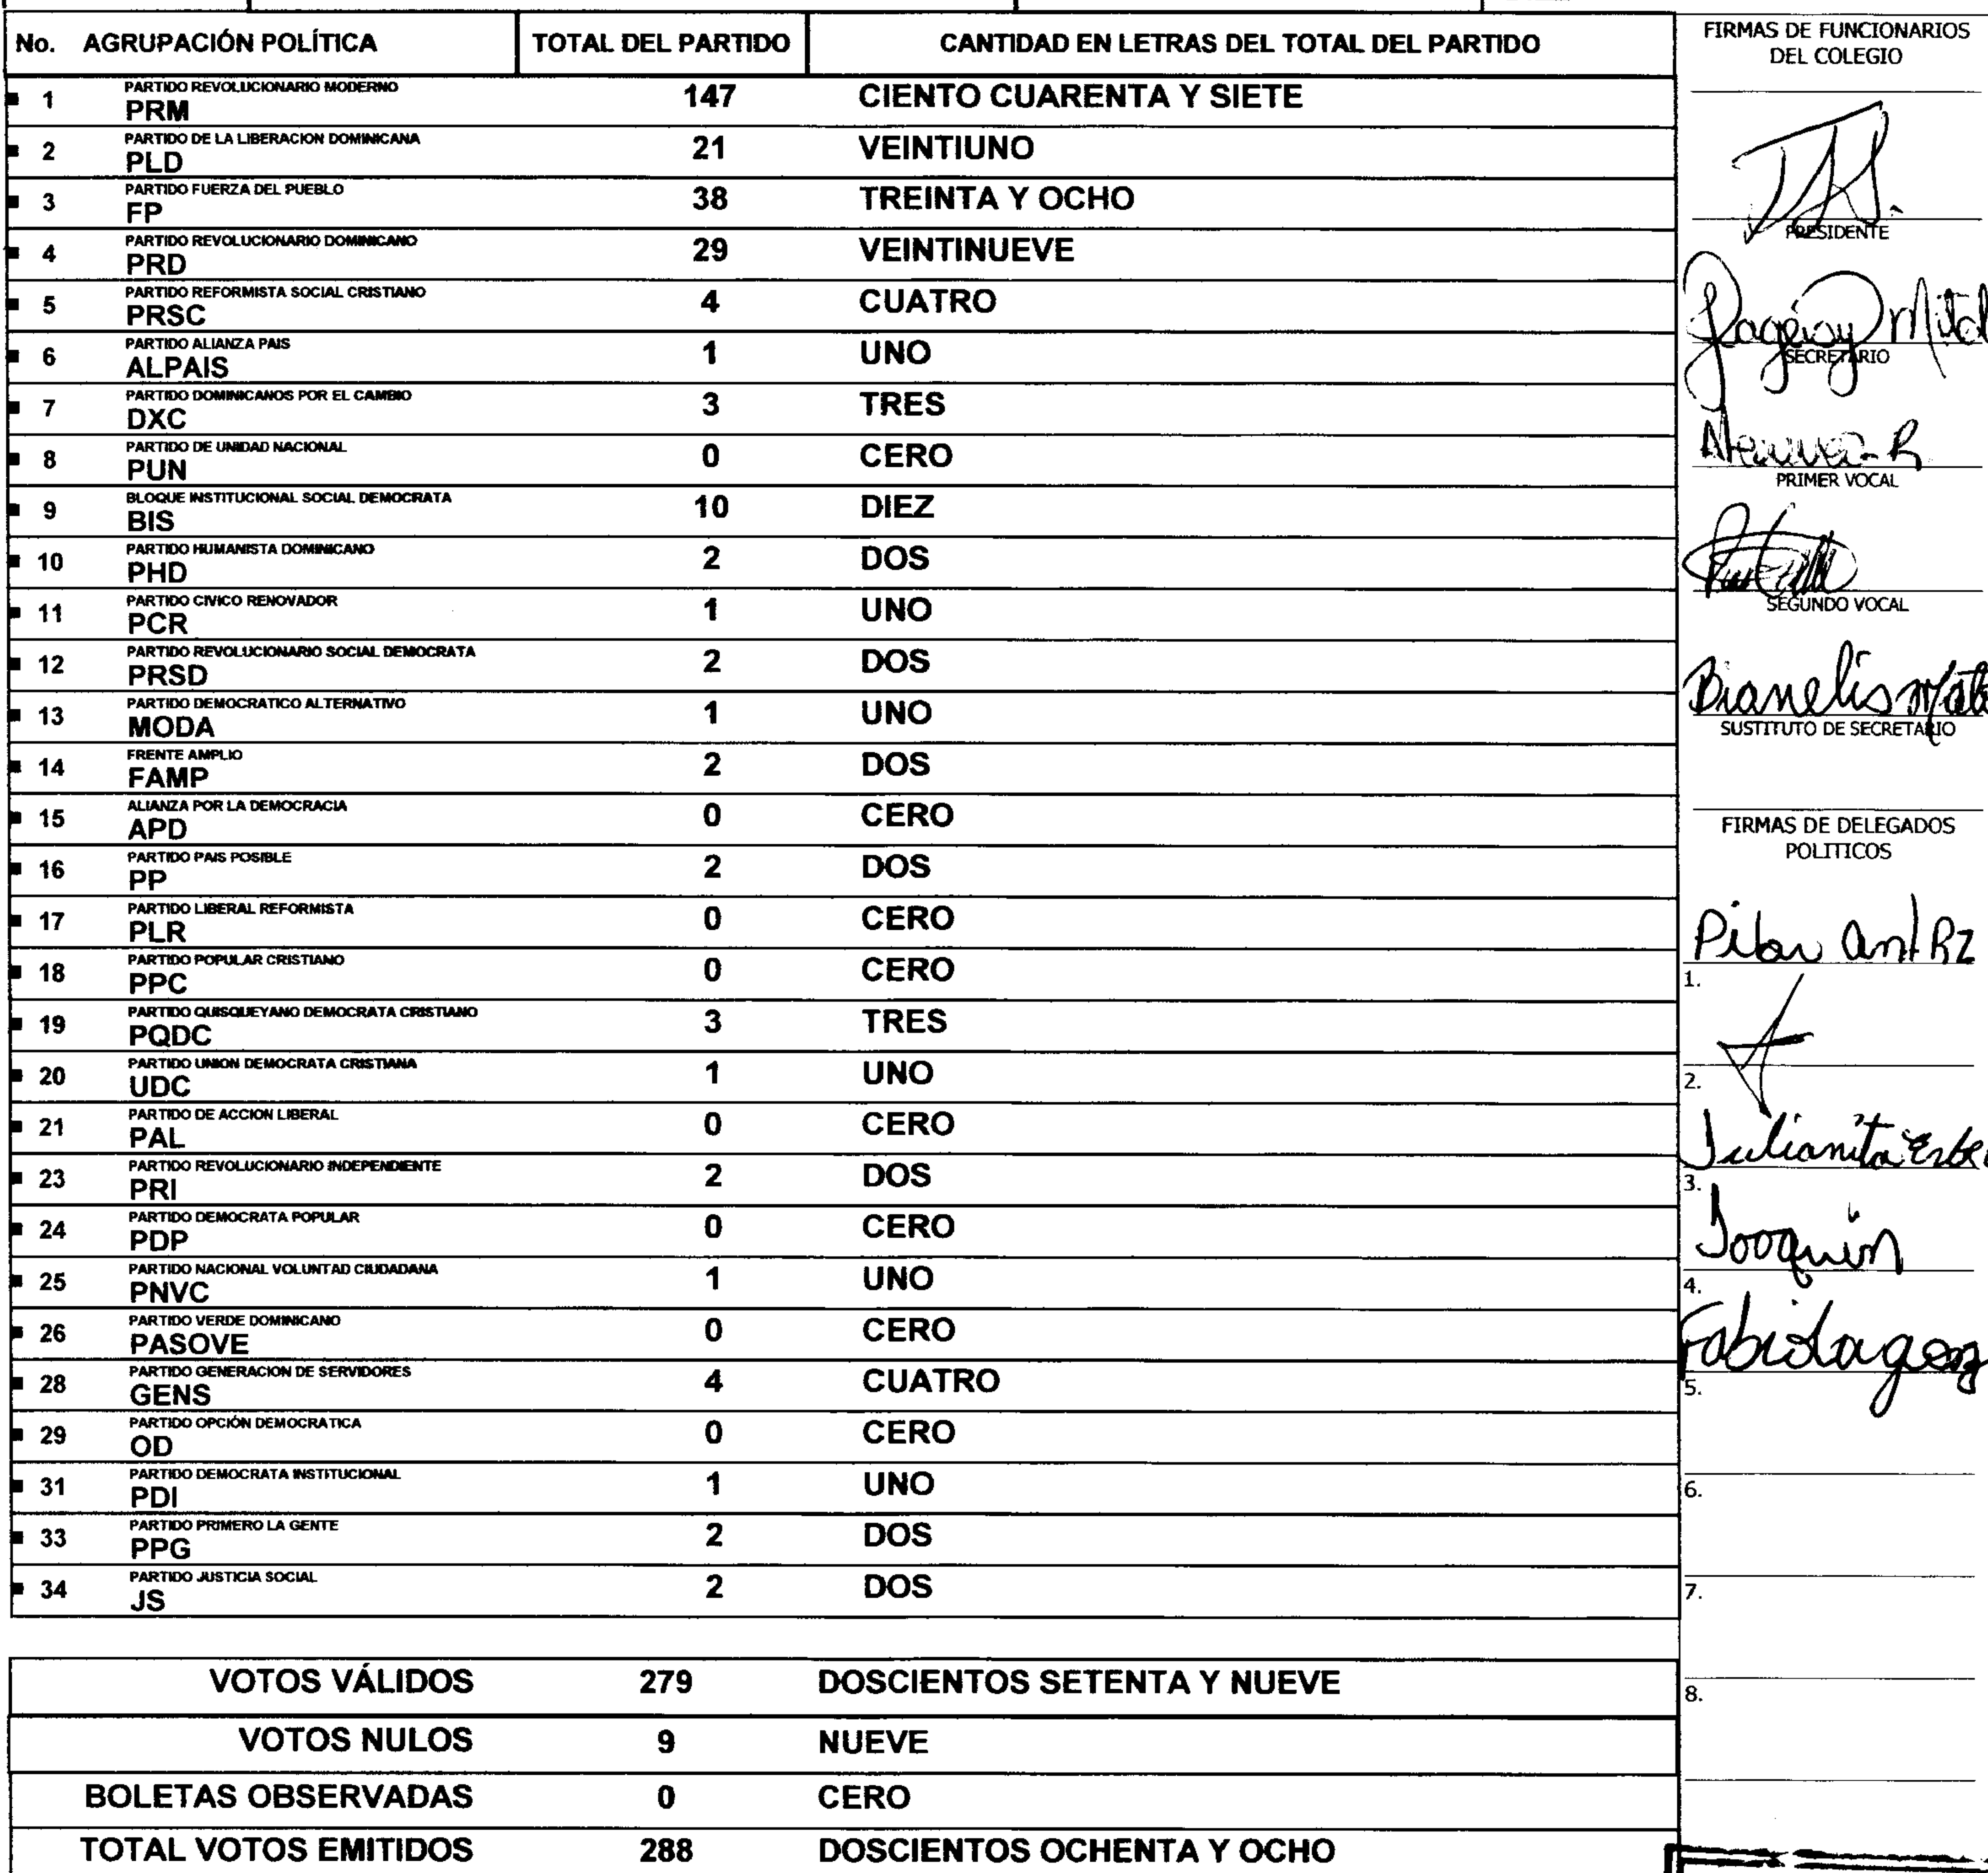 No. AGRUPACIÓN POLÍTICA TOTAL DEL PARTIDO CANTIDAD EN LETRAS DEL TOTAL DEL PARTIDO
PARTIDO REVOLUCIONARIO MODERNO
1 PRM 147 CIENTO CUARENTA Y SIETE
PARTIDO DE LA LIBERACION DOMINICANA
2 PLD 21 VEINTIUNO
PARTIDO FUERZA DEL PUEBLO
3 FP 38 TREINTA Y OCHO
PARTIDO REVOLUCIONARIO DOMINICANO
4 PRD 29 VEINTINUEVE
PARTIDO REFORMISTA SOCIAL CRISTIANO
5 PRSC 4 CUATRO
PARTIDO ALIANZA PAIS
6 ALPAIS 1 UNO
PARTIDO DOMINICANOS POR EL CAMBIO
7 DXC 3 TRES
PARTIDO DE UNIDAD NACIONAL
8 PUN 0 CERO
BLOQUE INSTITUCIONAL SOCIAL DEMOCRATA
9 BIS 10 DIEZ
PARTIDO HUMANISTA DOMINICANO
10 PHD 2 DOS
PARTIDO CIVICO RENOVADOR
11 PCR 1 UNO
PARTIDO REVOLUCIONARIO SOCIAL DEMOCRATA
12 PRSD 2 DOS
PARTIDO DEMOCRATICO ALTERNATIVO
13 MODA 1 UNO
FRENTE AMPLIO
14 FAMP 2 DOS
ALIANZA POR LA DEMOCRACIA
15 APD 0 CERO
PARTIDO PAIS POSIBLE
16 PP 2 DOS
PARTIDO LIBERAL REFORMISTA
17 PLR 0 CERO
PARTIDO POPULAR CRISTIANO
18 PPC 0 CERO
PARTIDO QUISQUEYANO DEMOCRATA CRISTIANO
19 PQDC 3 TRES
PARTIDO UNION DEMOCRATA CRISTIANA
20 UDC 1 UNO
PARTIDO DE ACCION LIBERAL
21 PAL 0 CERO
PARTIDO REVOLUCIONARIO INDEPENDIENTE
23 PRI 2 DOS
PARTIDO DEMOCRATA POPULAR
24 PDP 0 CERO
PARTIDO NACIONAL VOLUNTAD CIUDADANA
25 PNVC 1 UNO
PARTIDO VERDE DOMINICANO
26 PASOVE 0 CERO
PARTIDO GENERACION DE SERVIDORES
28 GENS 4 CUATRO
PARTIDO OPCIÓN DEMOCRATICA
29 OD 0 CERO
PARTIDO DEMOCRATA INSTITUCIONAL
31 PDI 1 UNO
PARTIDO PRIMERO LA GENTE
33 PPG 2 DOS
PARTIDO JUSTICIA SOCIAL
34 JS 2 DOS
VOTOS VÁLIDOS 279 DOSCIENTOS SETENTA Y NUEVE
VOTOS NULOS 9 NUEVE
BOLETAS OBSERVADAS 0 CERO
TOTAL VOTOS EMITIDOS 288 DOSCIENTOS OCHENTA Y OCHO
FIRMAS DE FUNCIONARIOS
DEL COLEGIO
PRESIDENTE
SECRETARIO
PRIMER VOCAL
SEGUNDO VOCAL
Bianelis
SUSTITUTO DE SECRETARIO
FIRMAS DE DELEGADOS
POLITICOS
Pilar Ant Rz
1.
2.
Julianita
3.
Joaquin
4.
Fabiola
5.
6.
7.
8.